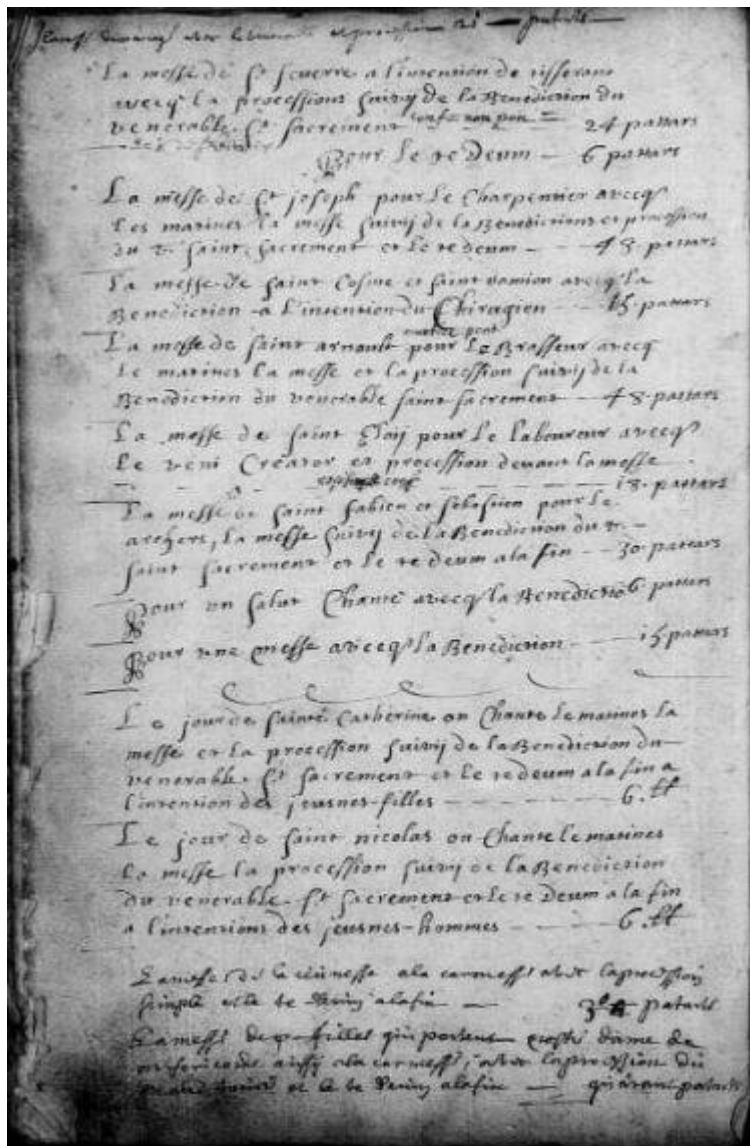 patars
La messe de St Severre a l'intention de tisserans
avecq la processions suivy de la Benediction du
venerable St sacrement 24 pattars
Pour le te Deum 6 pattars
La messe de St joseph pour le Charpentier avecq
Les matines la messe suivij de la Benedictions et procession
du v. saint sacrement et le te deum 48 pattars
La messe de saint Cosme et saint damion avecq la
Benediction a l'intention du Chirugien 15 pattars
La messe de saint arnoult pour le Brasseur avecq
Le matines la messe et la procession suivij de la
Benediction du venerable saint sacrement 48 pattars
La messe de saint Eloij pour le laboureur avecq
Le veni Creator et procession devant la messe
18 pattars
La messe de saint fabien et sebastien pour le
archers, la messe suivij de la Benediction du v.
saint sacrement et le te deum a la fin 30 pattars
Pour un salut Chanté avecq la Benedictio 6 pattars
Pour une messe avecq la Benediction 15 pattars
Le jour de sainte Catherine on Chante le matines la
messe et la procession suivij de la Benediction du
venerable St sacrement et le te deum a la fin a
l'intention des jeusnes filles 6 ff
Le jour de saint nicolas on Chante le matines
La messe la procession suivij de la Benediction
du venerable St sacrement et le te Deum a la fin
a l'intentions des jeusnes hommes 6 ff
La messe de la jeunesse a la carmesse avec la procession
simple et le te Deum a la fin patars
La messe de filles qui portent nostre dame de
misericorde aussy a la carmesse, avec la procession du
et le te Deum a la fin patars